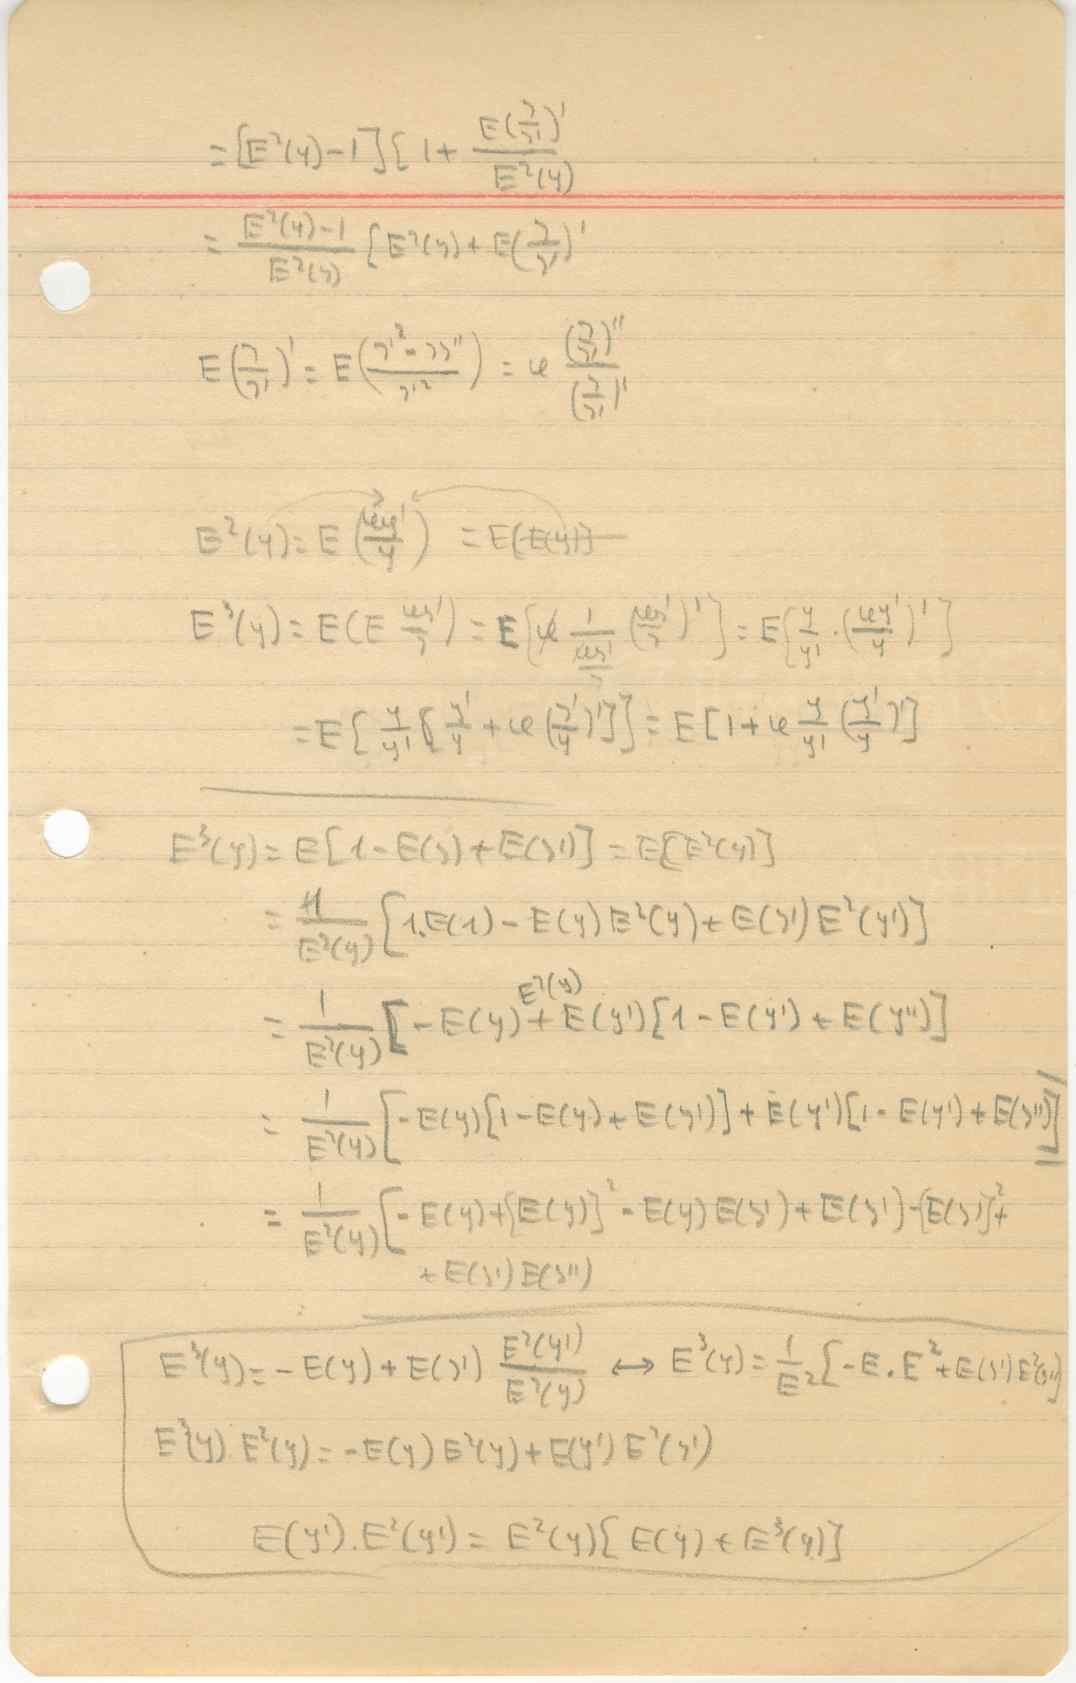 = [E²(y)-1] [ 1 + E(y/y')' / E²(y)
= (E²(y)-1) / E²(y) [ E²(y) + E(y/y')'
E(y/y')' = E( (y'² - yy'') / y'² ) = x (y/y')'' / (y/y')'
E²(y) = E(xy'/y) = E[E(y)]
E³(y) = E(E xy'/y) = E[ x 1/(xy'/y) (xy'/y)' ] = E[ y/y' · (xy'/y)' ]
= E[ y/y' [ y'/y + x (y'/y)' ] ] = E [ 1 + x y/y' (y'/y)' ]
E³(y) = E[1 - E(y) + E(y')] = E[E²(y)]
= 1/E²(y) [ 1.E(1) - E(y) E²(y) + E(y') E²(y') ]
= 1/E²(y) [ - E(y) E²(y) + E(y') [1 - E(y') + E(y'')]
= 1/E²(y) [ - E(y)[1 - E(y) + E(y')] + E(y')[1 - E(y') + E(y'')]
= 1/E²(y) [ - E(y) + [E(y)]² - E(y) E(y') + E(y') - [E(y')]² +
+ E(y') E(y'')
E³(y) = - E(y) + E(y') E²(y')/E²(y) ↔ E³(y) = 1/E² [ - E . E² + E(y') E²(y')]
E³(y) . E²(y) = - E(y) E²(y) + E(y') E²(y')
E(y') . E²(y') = E²(y) [ E(y) + E³(y)]